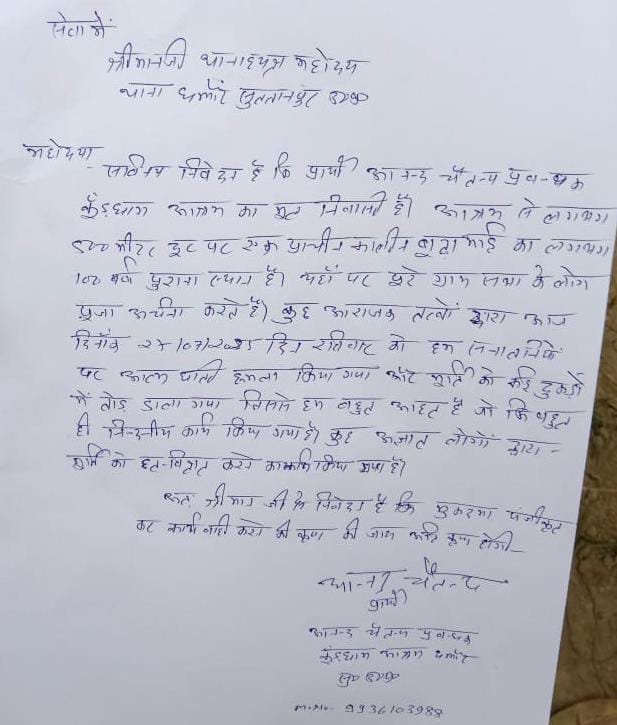 सेवा में
श्रीमानजी थानाध्यक्ष महोदय
थाना धम्मौर सुलतानपुर उ०प्र०
महोदय
सविनय निवेदन है कि प्रार्थी आनन्द चैतन्य प्रबन्धक
कुँड़धाम आश्रम का मूल निवासी हूँ। आश्रम से लगभग
500 मीटर दूर पर एक प्राचीन कालीन बूढ़ा माई का लगभग
100 वर्ष पुराना स्थान है। यहाँ पर पूरे ग्राम सभा के लोग
पूजा अर्चना करते हैं। कुछ अराजक तत्वों द्वारा आज
दिनाँक 27/07/2025 दिन रविवार को हम सनातनियों
पर आत्म घाती हमला किया गया और मूर्ति को कई टुकड़ों
में तोड़ डाला गया जिससे हम बहुत आहत है जो कि बहुत
ही निन्दनीय कार्य किया गया है। कुछ अज्ञात लोगों द्वारा -
मूर्ति को क्षत-विक्षत करने का कार्य किया गया है।
अतः श्रीमान जी से निवेदन है कि मुकदमा पंजीकृत
कर कार्यवाही करने की कृपा की जाय अति कृपा होगी
आनन्द चैतन्य
प्रार्थी
आनन्द चैतन्य प्रबन्धक
कुँड़धाम आश्रम धम्मौर
सु० उ०प्र०
M.No. 9936103988